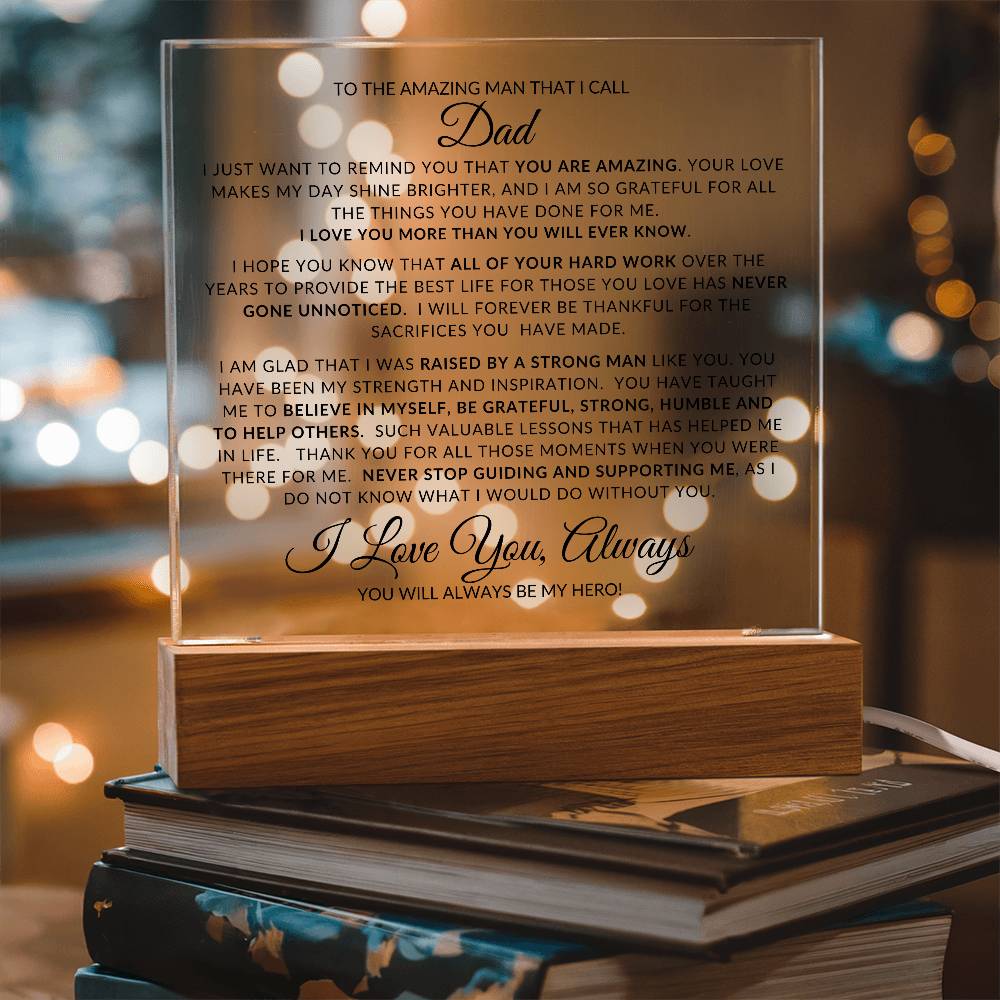 TO THE AMAZING MAN THAT I CALL
Dad
I JUST WANT TO REMIND YOU THAT YOU ARE AMAZING. YOUR LOVE
MAKES MY DAY SHINE BRIGHTER, AND I AM SO GRATEFUL FOR ALL
THE THINGS YOU HAVE DONE FOR ME.
I LOVE YOU MORE THAN YOU WILL EVER KNOW.
I HOPE YOU KNOW THAT ALL OF YOUR HARD WORK OVER THE
YEARS TO PROVIDE THE BEST LIFE FOR THOSE YOU LOVE HAS NEVER
GONE UNNOTICED. I WILL FOREVER BE THANKFUL FOR THE
SACRIFICES YOU HAVE MADE.
I AM GLAD THAT I WAS RAISED BY A STRONG MAN LIKE YOU. YOU
HAVE BEEN MY STRENGTH AND INSPIRATION. YOU HAVE TAUGHT
ME TO BELIEVE IN MYSELF, BE GRATEFUL, STRONG, HUMBLE AND
TO HELP OTHERS. SUCH VALUABLE LESSONS THAT HAS HELPED ME
IN LIFE. THANK YOU FOR ALL THOSE MOMENTS WHEN YOU WERE
THERE FOR ME. NEVER STOP GUIDING AND SUPPORTING ME, AS I
DO NOT KNOW WHAT I WOULD DO WITHOUT YOU.
I Love You, Always
YOU WILL ALWAYS BE MY HERO!